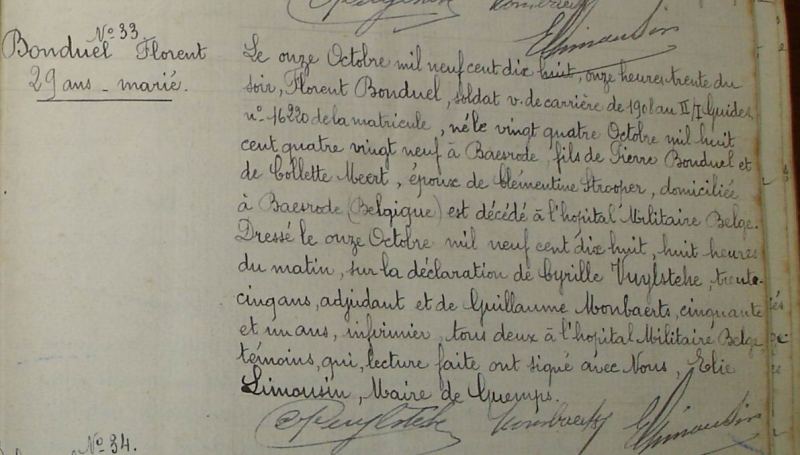 Nº 33.
Bonduel Florent
29 ans - marié.
Le onze Octobre mil neuf cent dix huit, onze heures trente du
soir, Florent Bonduel, soldat v. de carrière de 1908 au II/I Guides
nº 16220 de la matricule, né le vingt quatre Octobre mil huit
cent quatre vingt neuf à Baesrode, fils de Pierre Bonduel et
de Collette Meert, époux de Clémentine Strooper, domiciliée
à Baesrode (Belgique) est décédé à l'hopital Militaire Belge.
Dressé le onze Octobre mil neuf cent dix huit, huit heures
du matin, sur la déclaration de Cyrille Vuylsteke, trente-
cinq ans, adjudant et de Guillaume Monbaerts, cinquante
et un ans, infirmier, tous deux à l'hopital Militaire Belge,
témoins, qui, lecture faite ont signé avec Nous, Elie
Limousin, Maire de Guemps.
CVuylsteke Monbaerts ELimousin
Nº 34.